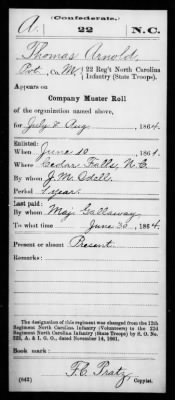 (Confederate.)
A. 22 N.C.
Thomas Arnold,
Pvt. Co. M, 22 Reg't North Carolina
Infantry (State Troops).
Appears on
Company Muster Roll
of the organization named above,
for July & Aug, 1864.
Enlisted:
When June 10, 1861.
Where Cedar Falls, N.C.
By whom J. M. Odell
Period 1 year.
Last paid:
By whom Maj Gallaway
To what time June 30, 1864.
Present or absent Present.
Remarks:
The designation of this regiment was changed from the 12th
Regiment North Carolina Infantry (Volunteers) to the 22d
Regiment North Carolina Infantry (State Troops) by S. O. No.
222, A. & I. G. O., dated November 14, 1861.
Book mark:
(642) F. C. Pratz
Copyist.